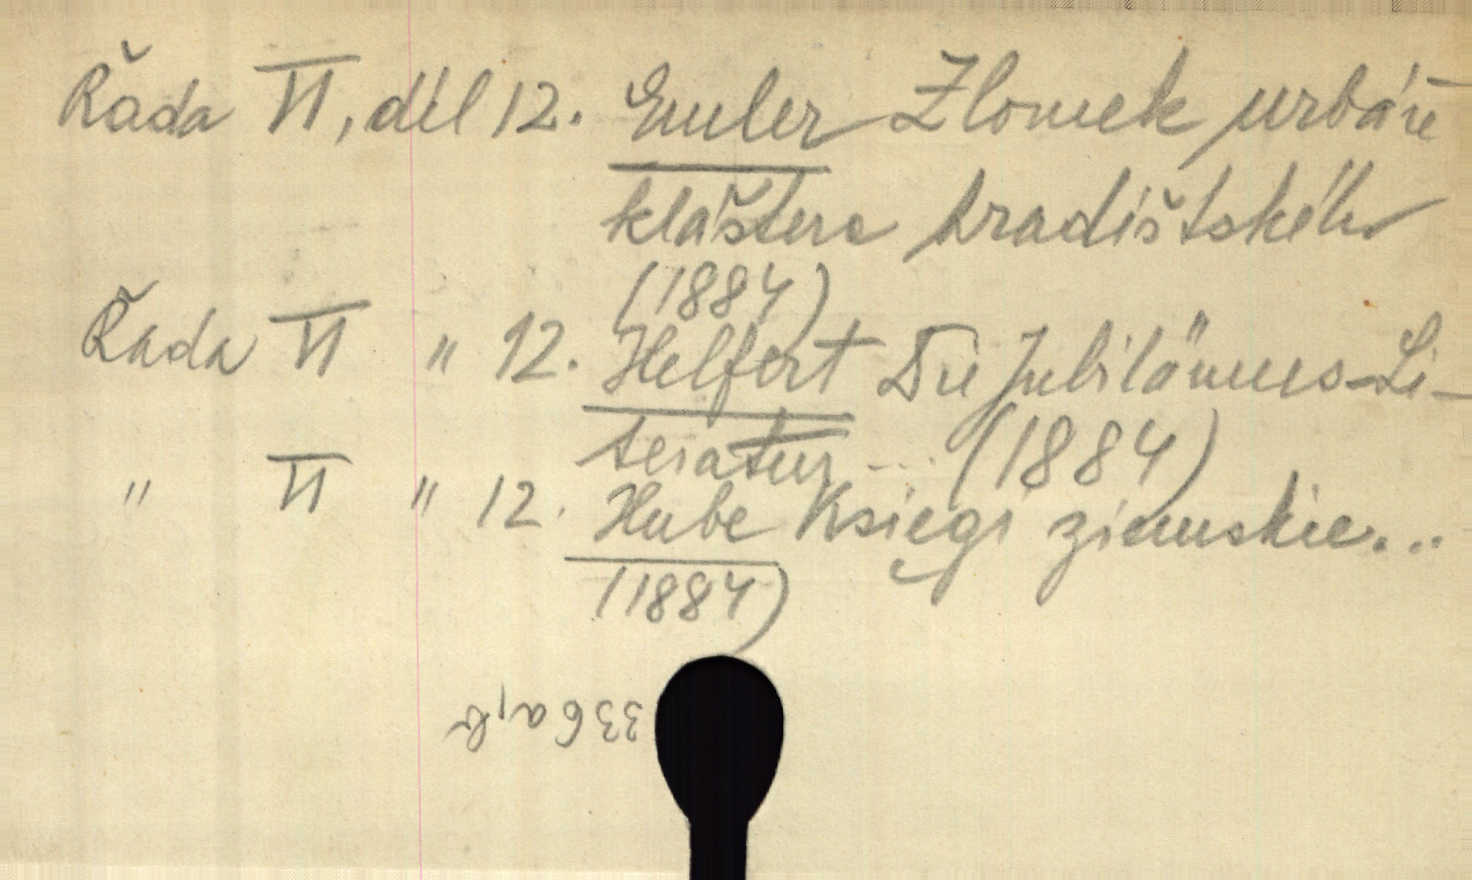 Řada VI, díl 12. Emler Zlomek urbáře
kláštera hradištského
(1884)
Řada VI " 12. Helfert Die Jubiläums-Li-
teratur ... (1884)
" VI " 12. Hube Księgi ziemskie...
(1884)
336a,b